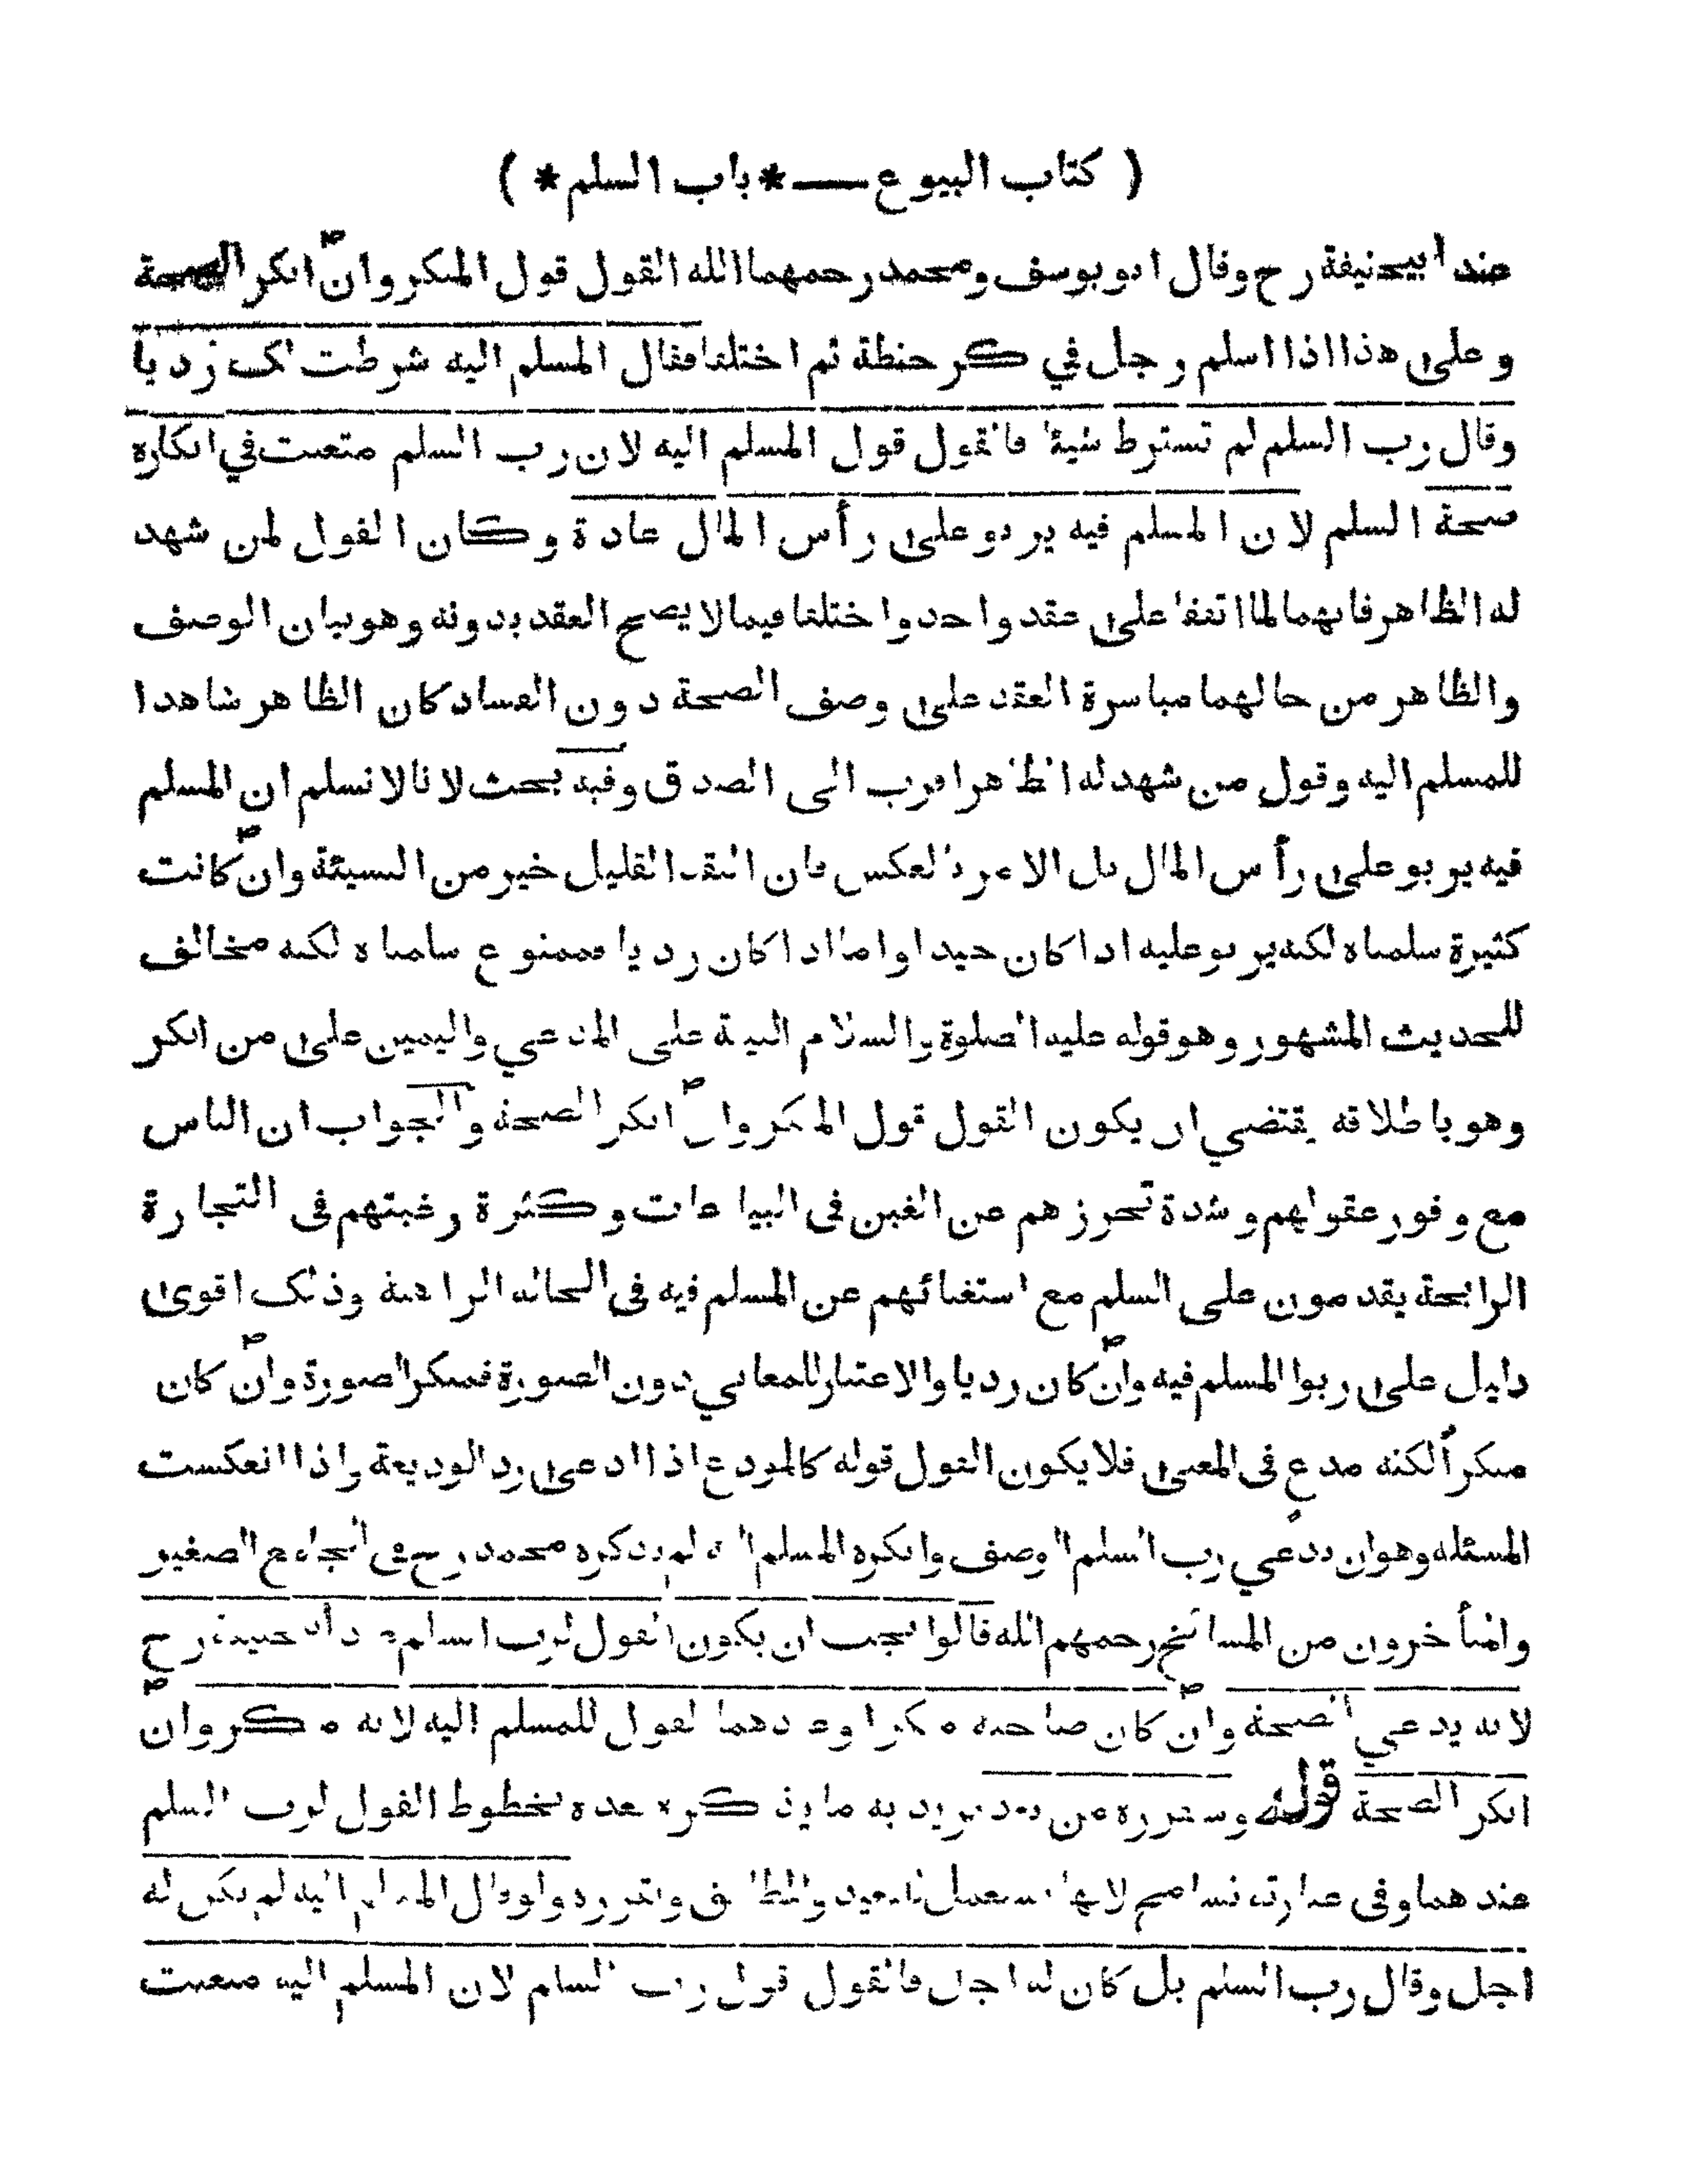 ( كتاب البيوع — * باب السلم * )
عند ابيحنيفة رح وقال ابو يوسف ومحمد رحمهما الله القول قول المنكر وان انكر الصحة
وعلى هذا اذا اسلم رجل في كر حنطة ثم اختلفا فقال المسلم اليه شرطت لك رديا
وقال رب السلم لم تشترط شيئا فالقول قول المسلم اليه لان رب السلم متعنت في انكاره
صحة السلم لان المسلم فيه يربو على رأس المال عادة وكان القول لمن شهد
له الظاهر فانهما لما اتفقا على عقد واحد واختلفا فيما لا يصح العقد بدونه وهو بيان الوصف
والظاهر من حالهما مباشرة العقد على وصف الصحة دون الفساد كان الظاهر شاهدا
للمسلم اليه وقول من شهد له الظاهر اقرب الى الصدق وفيه بحث لانا لا نسلم ان المسلم
فيه يربو على رأس المال بل الامر بالعكس فان النقد القليل خير من النسيئة وان كانت
كثيرة سلمناه لكنه يربو عليه اذا كان جيدا واما اذا كان رديا فممنوع سلمناه لكنه مخالف
للحديث المشهور وهو قوله عليه الصلوة والسلام البينة على المدعي واليمين على من انكر
وهو باطلاقه يقتضي ان يكون القول قول المنكر وان انكر الصحة والجواب ان الناس
مع وفور عقولهم وشدة تحرزهم عن الغبن في البياعات وكثرة رغبتهم في التجارة
الرابحة يقدمون على السلم مع استغنائهم عن المسلم فيه في الحالة الراهنة وذلك اقوى
دليل على ربوا المسلم فيه وان كان رديا والاعتبار للمعاني دون الصورة فمنكر الصورة وان كان
منكرا لكنه مدع في المعنى فلا يكون القول قوله كالمودع اذا ادعى رد الوديعة واذا انعكست
المسئلة وهو ان يدعي رب السلم الوصف وانكره المسلم اليه لم يذكره محمد رح في الجامع الصغير
والمتأخرون من المشائخ رحمهم الله قالوا يجب ان يكون القول لرب السلم عند أبي حنيفة رح
لانه يدعي الصحة وان كان صاحبه منكرا وعندهما القول للمسلم اليه لانه منكر وان
انكر الصحة قوله وسنقرره من بعد يريد به ما يذكره بعده بخطوط القول لرب السلم
عندهما وفي عبارته تسامح لانها تستعمل للبعيد والمطابق ونقرره ولو قال المسلم اليه لم يكن له
اجل وقال رب السلم بل كان له اجل فالقول قول رب السلم لان المسلم اليه متعنت